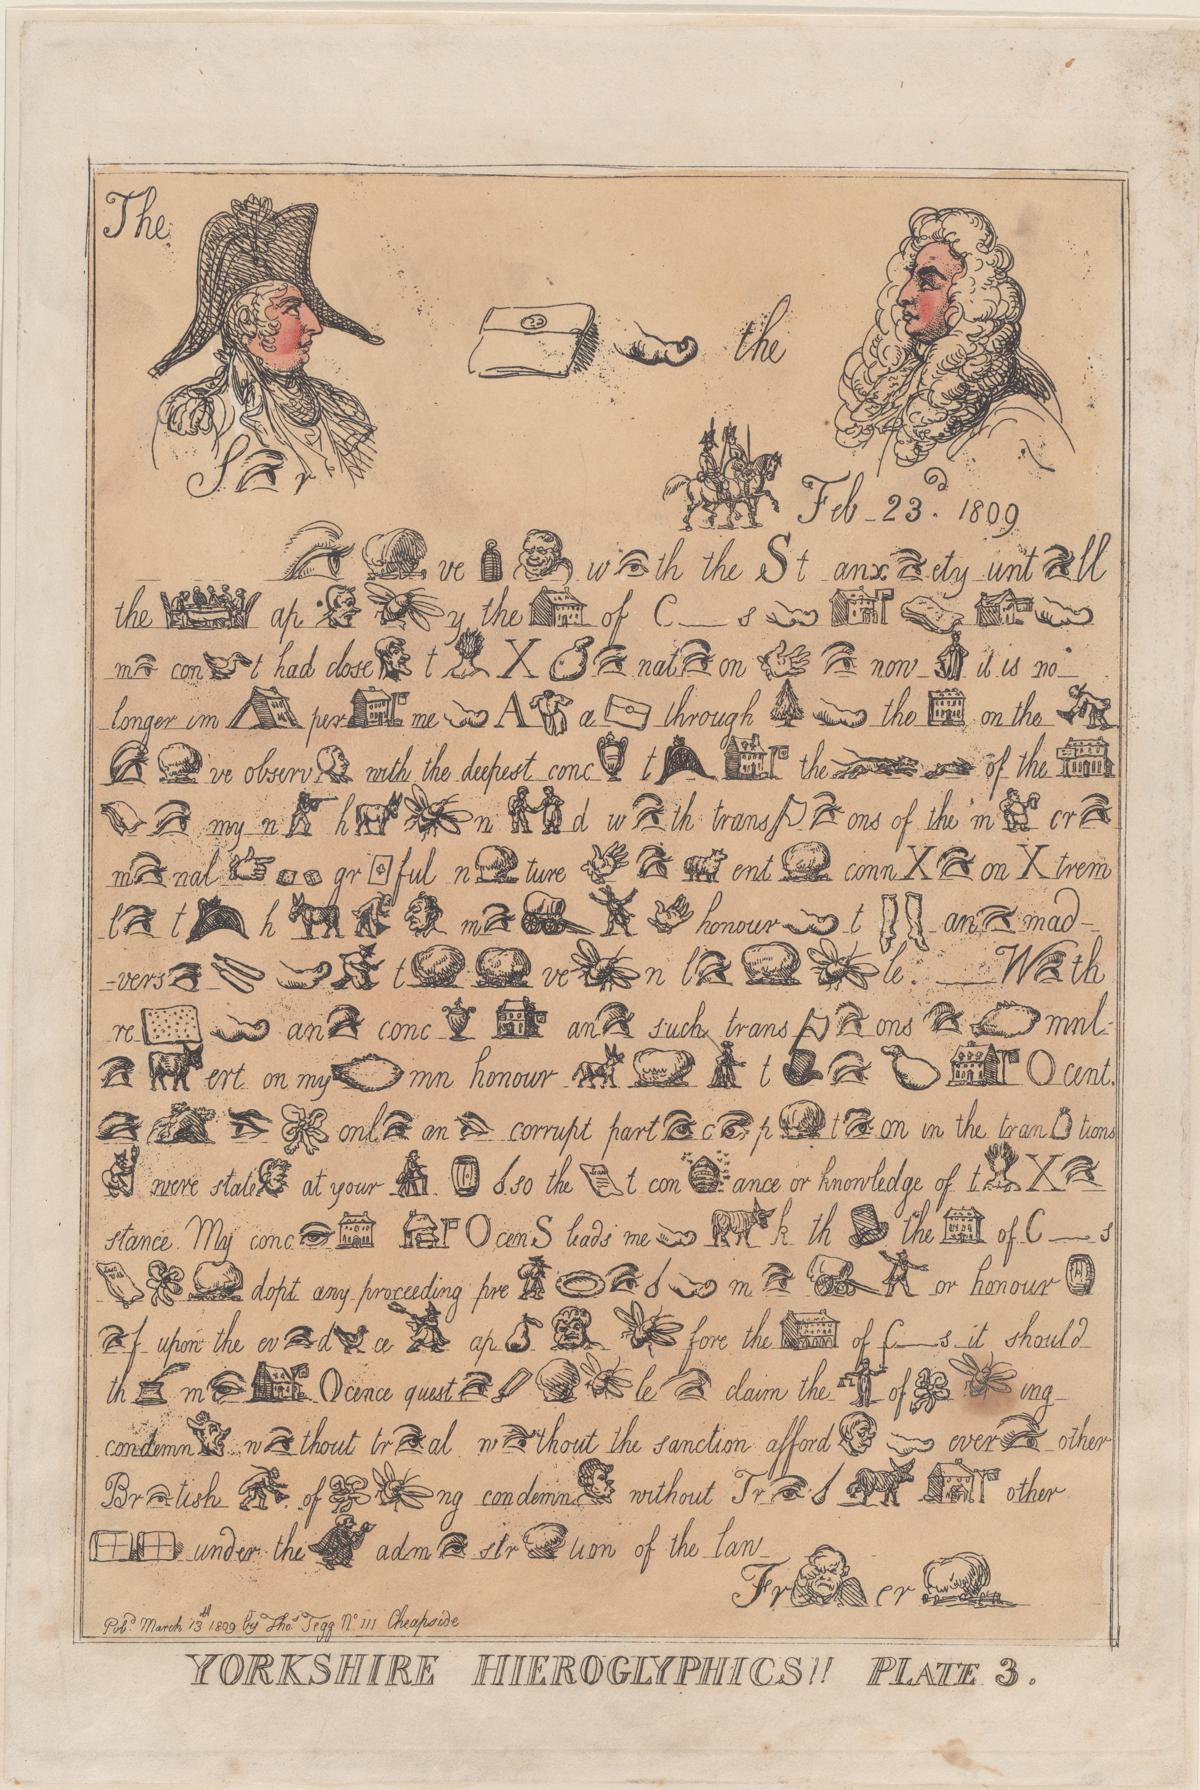 The
the
S r
Feb 23d. 1809
ve w th the St anx ety unt ll
the ap y the of C s
m con t had close t X nat on now it is no
longer im per me A a through the on the
ve observ with the deepest conc t the of the
my n h n d w th trans ons of the m cr
m nal gr ful n ture end conn X on X trem
l t h m honour t an mad-
-vers t ve n l le. With
re an conc an such trans ons mnl-
ert on my mn honour t O cent.
onl an corrupt part c p t on in the tran tions
were state at your so the t con ance or knowledge of t X
stance. My conc O cenS leads me k th the of C s
dopt any proceeding pre m or honour
f upon the ev d ce ap fore the of C s it should
th m O cence quest le claim the of ing
condemn w thout tr al w thout the sanction afford ever other
Br tish of ng condemn without Tr other
under the adm str tion of the law
Fr er
Pubd. March 13th 1809 by Thos Tegg No 111 Cheapside
YORKSHIRE HIEROGLYPHICS!! PLATE 3.